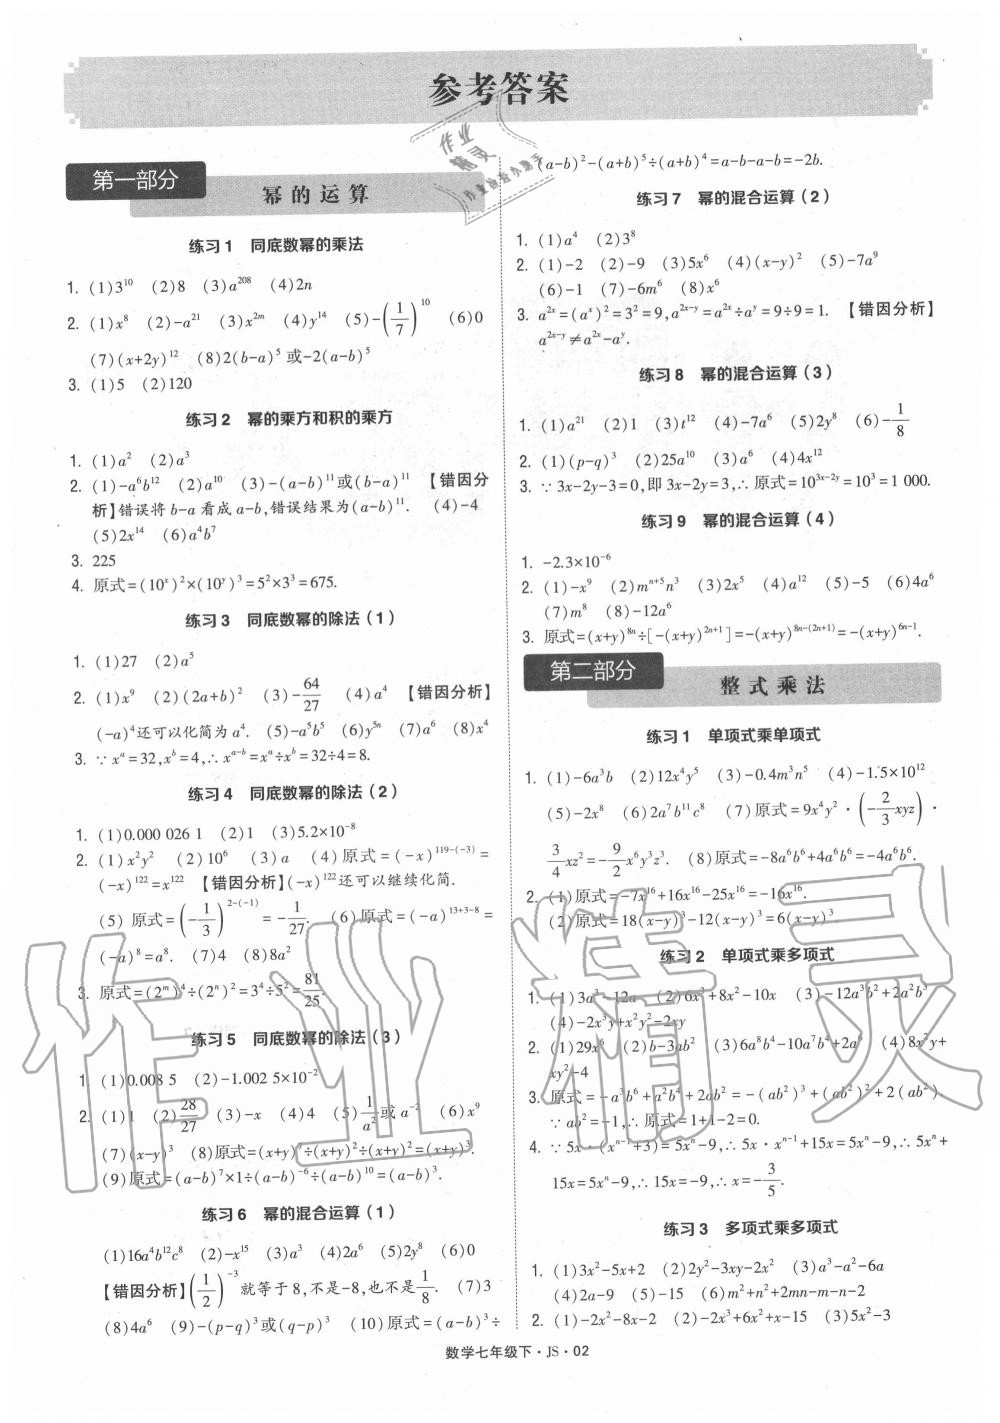 参考答案
第一部分
幂的运算
练习1 同底数幂的乘法
1. (1)3^10 (2)8 (3)a^208 (4)2n
2. (1)x^8 (2)-a^21 (3)x^2m (4)y^14 (5)-(1/7)^10 (6)0
(7)(x+2y)^12 (8)2(b-a)^5或-2(a-b)^5
3. (1)5 (2)120
练习2 幂的乘方和积的乘方
1. (1)a^2 (2)a^3
2. (1)-a^6b^12 (2)a^10 (3)-(a-b)^11或(b-a)^11 【错因分
析】错误将b-a看成a-b,错误结果为(a-b)^11. (4)-4
(5)2x^14 (6)a^4b^7
3. 225
4. 原式=(10^x)^2×(10^y)^3=5^2×3^3=675.
练习3 同底数幂的除法(1)
1. (1)27 (2)a^5
2. (1)x^9 (2)(2a+b)^2 (3)-64/27 (4)a^4 【错因分析】
(-a)^4还可以化简为a^4. (5)-a^5b^5 (6)y^5n (7)a^6 (8)x^4
3. ∵x^a=32,x^b=4,∴x^a-b=x^a÷x^b=32÷4=8.
练习4 同底数幂的除法(2)
1. (1)0.000 026 1 (2)1 (3)5.2×10^-8
2. (1)x^2y^2 (2)10^6 (3)a (4)原式=(-x)^119-(-3)=
(-x)^122=x^122 【错因分析】(-x)^122还可以继续化简.
(5)原式=(-1/3)^2-(-1)=-1/27. (6)原式=(-a)^13+3-8=
(-a)^8=a^8. (7)4 (8)8a^2
3. 原式=(2^m)^4÷(2^n)^2=3^4÷5^2=81/25.
练习5 同底数幂的除法(3)
1. (1)0.008 5 (2)-1.002 5×10^-2
2. (1)1 (2)28/27 (3)-x (4)4 (5)1/a^2或a^-2 (6)x^9
(7)(x-y)^3 (8)原式=(x+y)^7÷(x+y)^2÷(x+y)^2=(x+y)^3.
(9)原式=(a-b)^7×1÷(a-b)^-6÷(a-b)^10=(a-b)^3.
练习6 幂的混合运算(1)
(1)16a^4b^12c^8 (2)-x^15 (3)a^3 (4)2a^6 (5)2y^8 (6)0
【错因分析】(1/2)^-3就等于8,不是-8,也不是1/8. (7)3
(8)4a^6 (9)-(p-q)^3或(q-p)^3 (10)原式=(a-b)^3÷
(a-b)^2-(a+b)^5÷(a+b)^4=a-b-a-b=-2b.
练习7 幂的混合运算(2)
1. (1)a^4 (2)3^8
2. (1)-2 (2)-9 (3)5x^6 (4)(x-y)^2 (5)-7a^9
(6)-1 (7)-6m^6 (8)x^6
3. a^2x=(a^x)^2=3^2=9,a^2x-y=a^2x÷a^y=9÷9=1. 【错因分析】
a^2x-y≠a^2x-a^y.
练习8 幂的混合运算(3)
1. (1)a^21 (2)1 (3)t^12 (4)-7a^6 (5)2y^8 (6)-1/8
2. (1)(p-q)^3 (2)25a^10 (3)a^6 (4)4x^12
3. ∵3x-2y-3=0,即3x-2y=3,∴原式=10^3x-2y=10^3=1 000.
练习9 幂的混合运算(4)
1. -2.3×10^-6
2. (1)-x^9 (2)m^n+5n^3 (3)2x^5 (4)a^12 (5)-5 (6)4a^6
(7)m^8 (8)-12a^6
3. 原式=(x+y)^8n÷[-(x+y)^2n+1]=-(x+y)^8n-(2n+1)=-(x+y)^6n-1.
第二部分
整式乘法
练习1 单项式乘单项式
1. (1)-6a^3b (2)12x^4y^5 (3)-0.4m^3n^5 (4)-1.5×10^12
(5)-2x^8 (6)2a^7b^11c^8 (7)原式=9x^4y^2·(-2/3xyz)·
3/4xz^2=-9/2x^6y^3z^3. (8)原式=-8a^6b^6+4a^6b^6=-4a^6b^6.
2. (1)原式=-7x^16+16x^16-25x^16=-16x^16.
(2)原式=18(x-y)^3-12(x-y)^3=6(x-y)^3
练习2 单项式乘多项式
1. (1)3a^3-12a (2)6x^3+8x^2-10x (3)-12a^3b^2+2a^2b^3
(4)-2x^3y+x^2y^2-2xy
2. (1)29x^6 (2)b-3ab^2 (3)6a^8b^4-10a^7b^4+2a^6 (4)8x^2y+
xy^2-4
3. 原式=-a^3b^6+a^2b^4+2ab^2=-(ab^2)^3+(ab^2)^2+2(ab^2).
∵ab^2=-1,∴原式=1+1-2=0.
4. ∵5x·(x^n-1+3)=5x^n-9,∴5x·x^n-1+15x=5x^n-9,∴5x^n+
15x=5x^n-9,∴15x=-9,∴x=-3/5.
练习3 多项式乘多项式
1. (1)3x^2-5x+2 (2)2y^2-3xy-2x^2 (3)a^3-a^2-6a
(4)2a-9 (5)-15 (6)m^2+n^2+2mn-m-n-2
2. (1)-2x^2-8x-2 (2)-2x^3+6x^2+x-15 (3)5x^2-3
数学七年级下·JS·02
作业精灵